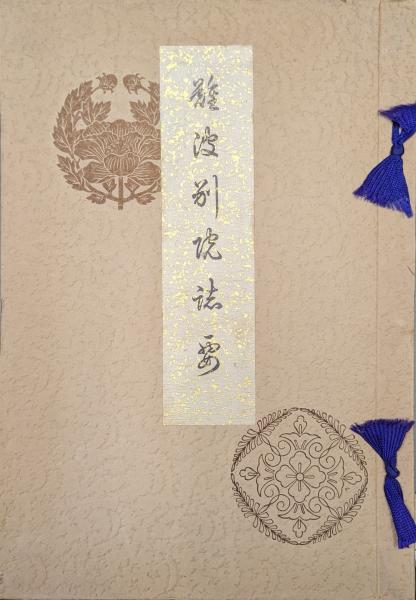 難波別院誌要